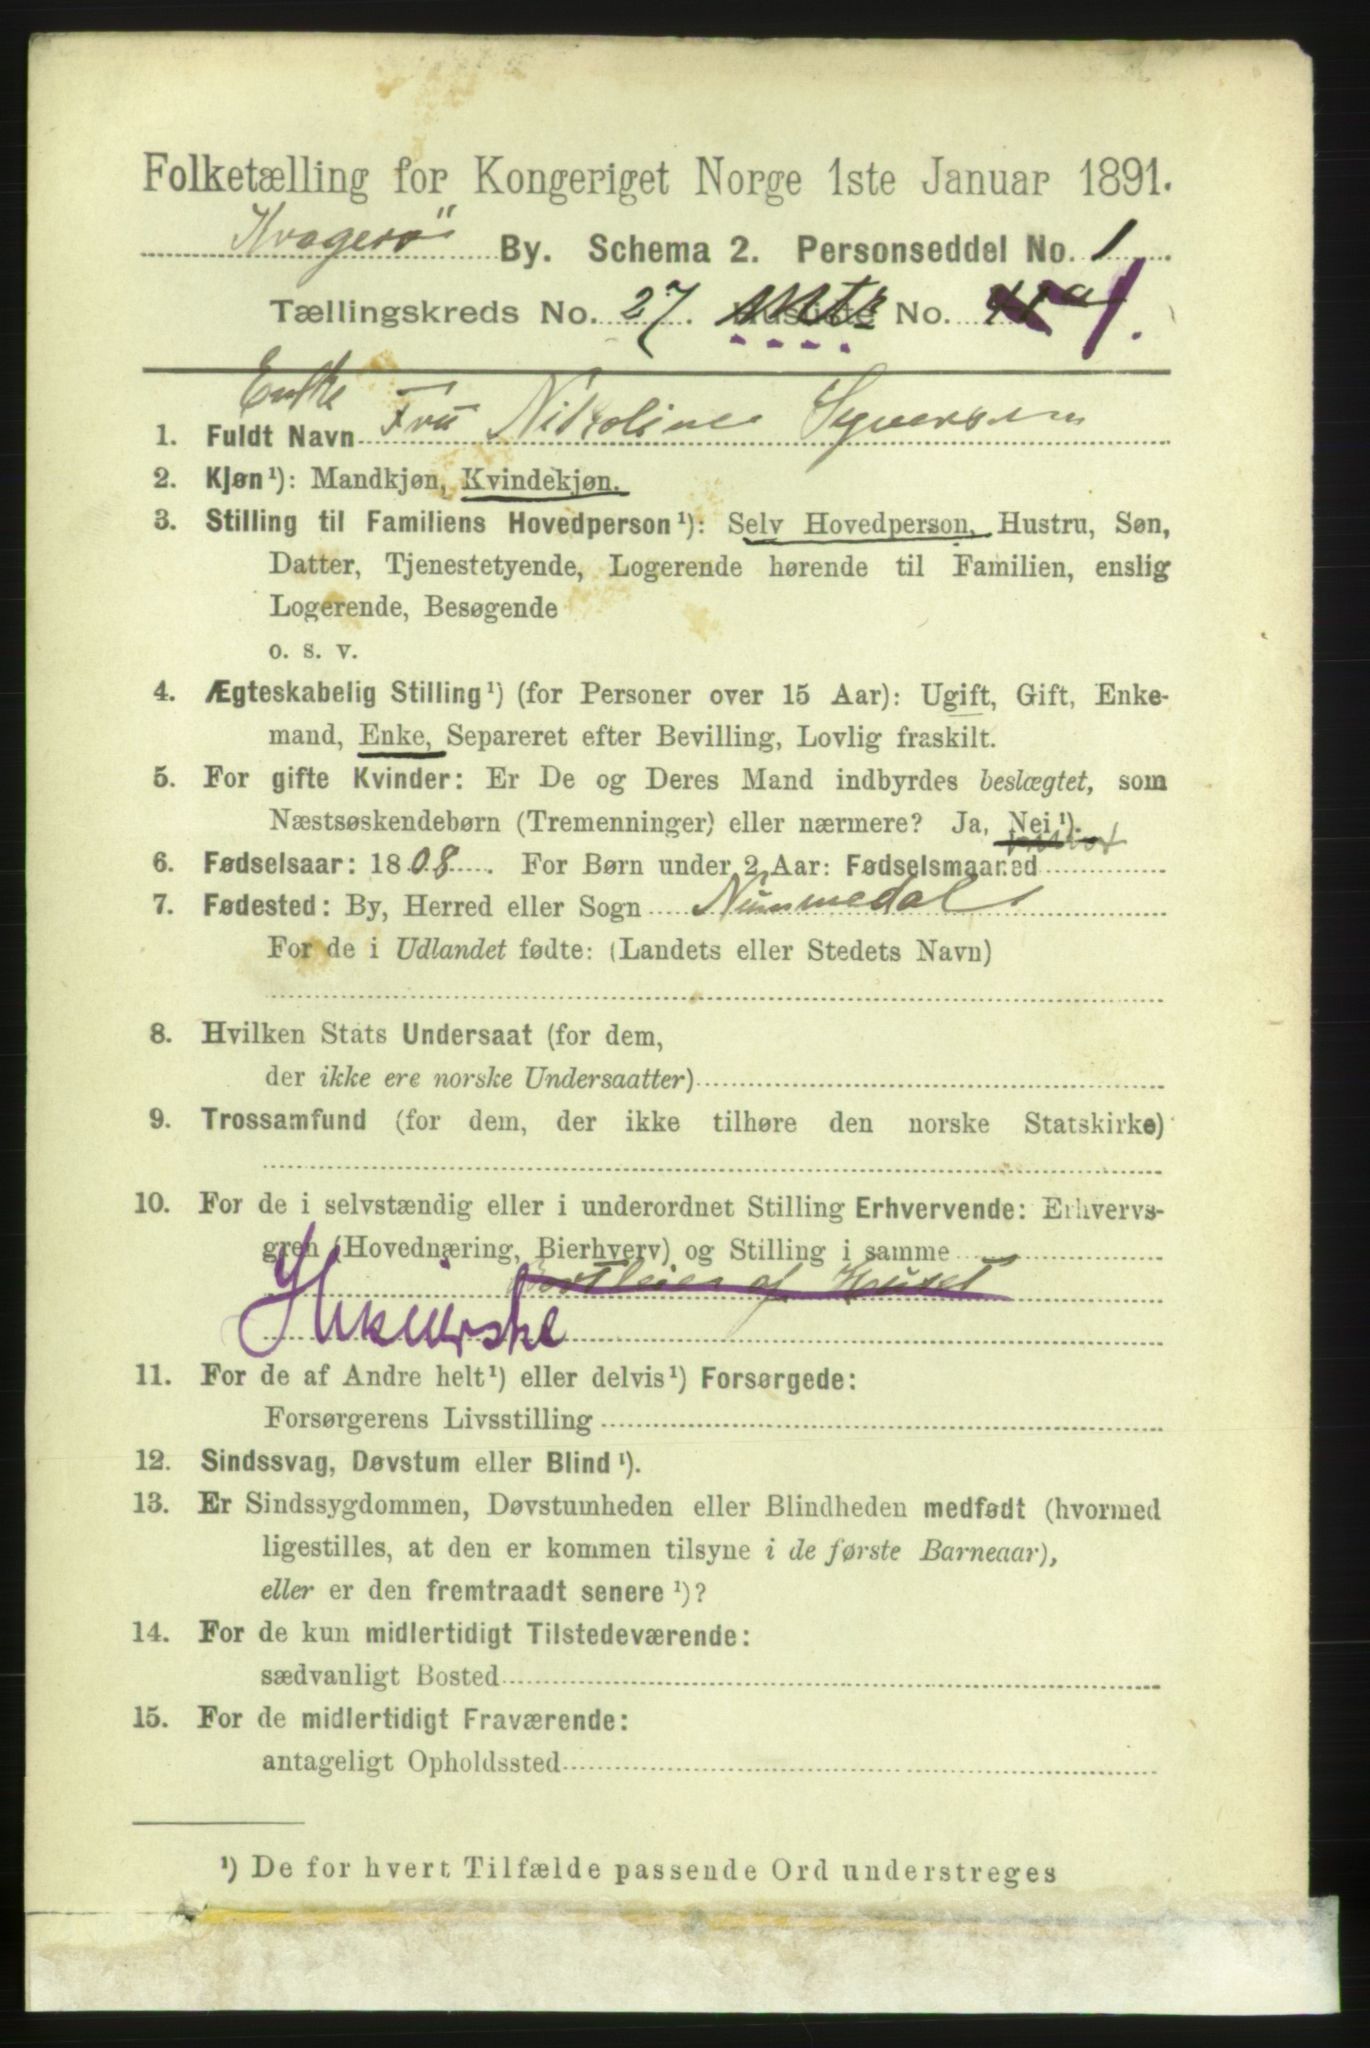 Folketælling for Kongeriget Norge 1ste Januar 1891.
Kragerø By. Schema 2. Personseddel No. 1
Tællingskreds No. 27. Mtr No. 1.
Enke
1. Fuldt Navn Fru Nikoline Syversen
2. Kjøn¹): Mandkjøn, Kvindekjøn.
3. Stilling til Familiens Hovedperson¹): Selv Hovedperson, Hustru, Søn,
Datter, Tjenestetyende, Logerende hørende til Familien, enslig
Logerende, Besøgende
o. s. v.
4. Ægteskabelig Stilling¹) (for Personer over 15 Aar): Ugift, Gift, Enke-
mand, Enke, Separeret efter Bevilling, Lovlig fraskilt.
5. For gifte Kvinder: Er De og Deres Mand indbyrdes beslægtet, som
Næstsøskendebørn (Tremenninger) eller nærmere? Ja, Nei¹).
6. Fødselsaar: 1808. For Børn under 2 Aar: Fødselsmaaned
7. Fødested: By, Herred eller Sogn Nummedal
For de i Udlandet fødte: (Landets eller Stedets Navn)
8. Hvilken Stats Undersaat (for dem,
der ikke ere norske Undersaatter)
9. Trossamfund (for dem, der ikke tilhøre den norske Statskirke)
10. For de i selvstændig eller i underordnet Stilling Erhvervende: Erhvervs-
gren (Hovednæring, Bierhverv) og Stilling i samme
af Huset
11. For de af Andre helt¹) eller delvis¹) Forsørgede:
Forsørgerens Livsstilling
12. Sindssvag, Døvstum eller Blind¹).
13. Er Sindssygdommen, Døvstumheden eller Blindheden medfødt (hvormed
ligestilles, at den er kommen tilsyne i de første Barneaar),
eller er den fremtraadt senere¹)?
14. For de kun midlertidigt Tilstedeværende:
sædvanligt Bosted
15. For de midlertidigt Fraværende:
antageligt Opholdssted
¹) De for hvert Tilfælde passende Ord understreges